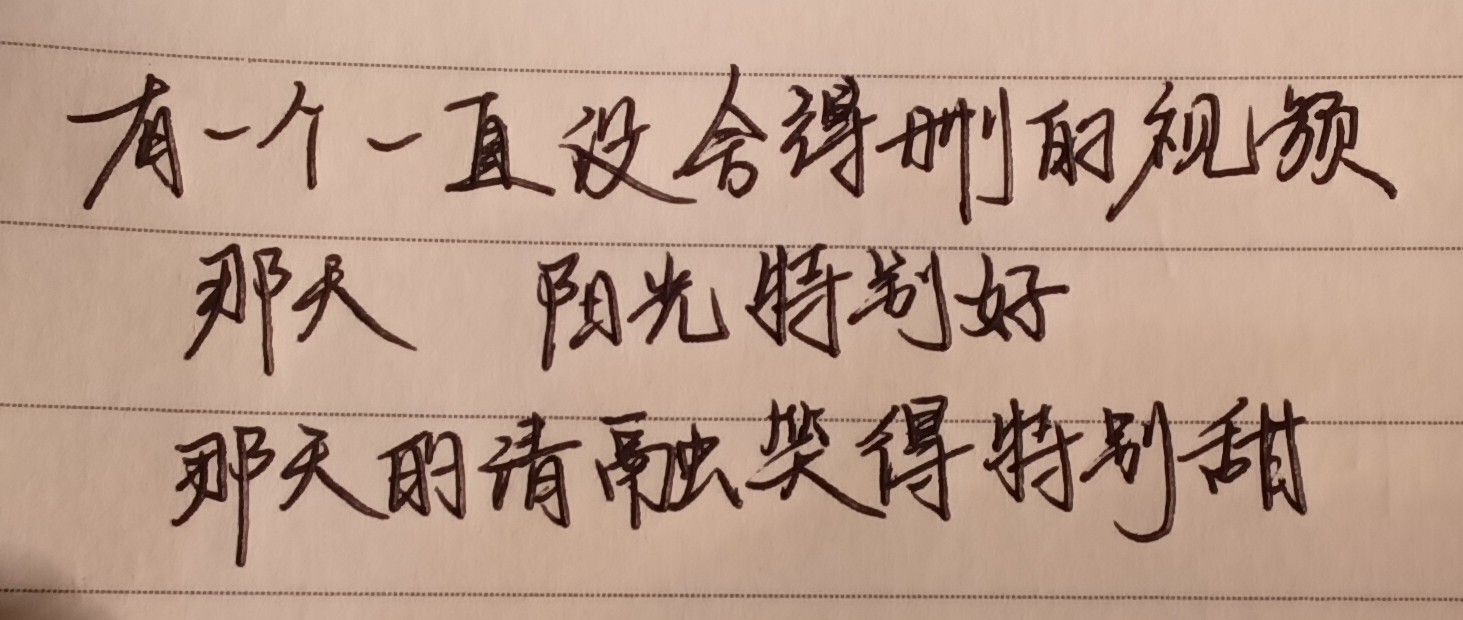 有一个一直没舍得删的视频
那天 阳光特别好
那天的清融笑得特别甜